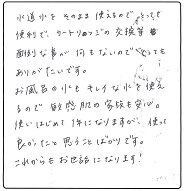 水道水をそのまま使えるのでとっても
便利で、カートリッジの交換等
面倒な事が何もないのでとっても
ありがたいです。
お風呂の水もキレイな水を使え
るので敏感肌の家族も安心。
使いはじめて1年になりますが、使って
良かったと思うことばかりです。
これからもお世話になります!